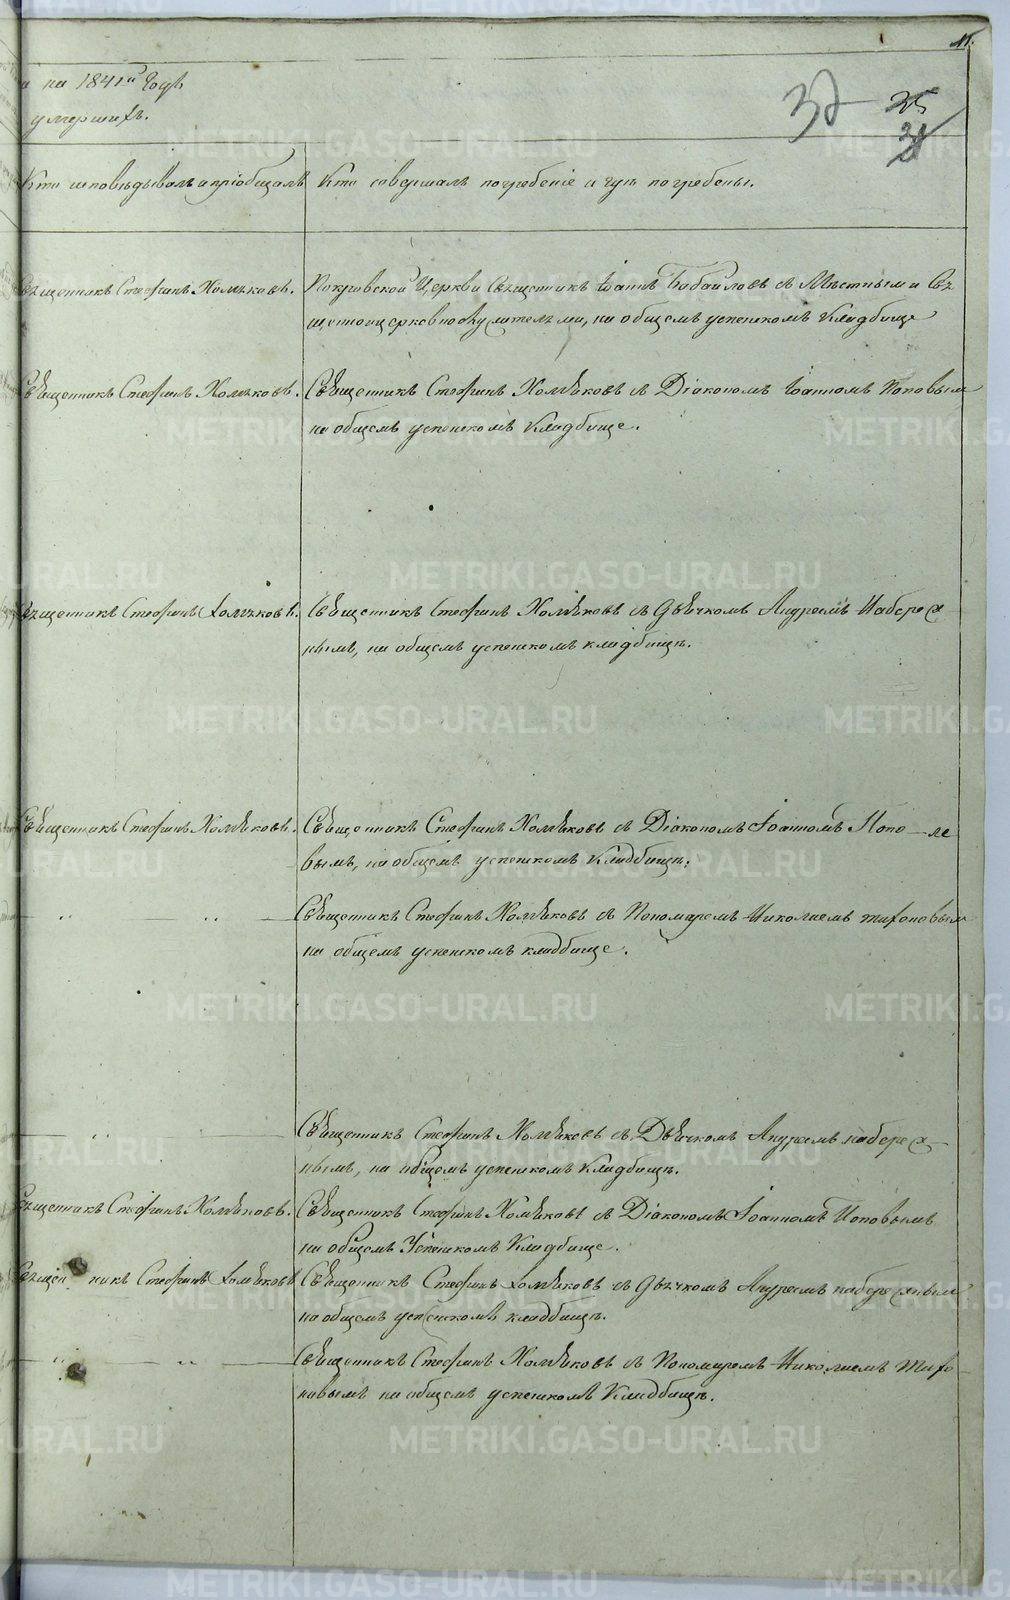 на 1841й Годъ
умершихъ.
Кто исповѣдывалъ и пріобщалъ
Кто совершалъ погребеніе и гдѣ погребены.
Священникъ Стефанъ Хомяковъ.
Покровской Церкви Священникъ Іоаннъ Бабайловъ съ Мѣстными свя
щенноцерковнослужительми, на общемъ успенскомъ Кладбище
Священникъ Стефанъ Хомяковъ.
Священникъ Стефанъ Хомяковъ съ Діакономъ Іоанномъ Поповым
на общемъ успенскомъ Кладбище.
Священникъ Стефанъ Хомяковъ.
Священникъ Стефанъ Хомяковъ съ дьячкомъ Андреемъ Набереж
нымъ, на общемъ успенскомъ кладбищѣ.
Священникъ Стефанъ Хомяковъ.
Священникъ Стефанъ Хомяковъ съ Діакономъ Іоанномъ Попо
вымъ, на общемъ успенскомъ Кладбищѣ.
Священникъ Стефанъ Хомяковъ съ Пономаремъ Николаемъ тихоновым
на общемъ успенскомъ кладбище.
Священникъ Стефанъ Хомяковъ съ Дьячкомъ Андреемъ набереж
нымъ, на общемъ успенскомъ Кладбищѣ.
Священникъ Стефанъ Хомяковъ.
Священникъ Стефанъ Хомяковъ съ Діакономъ Іоанномъ Поповымъ
на общемъ Успенскомъ Кладбище.
Священникъ Стефанъ Хомяковъ
Священникъ Стефанъ Хомяковъ съ дьячкомъ Андреемъ набережным
на общемъ успенскомъ кладбищѣ.
Священникъ Стефанъ Хомяковъ съ Пономаремъ Николаемъ Тихо
новымъ на общемъ успенскомъ Кладбищѣ.
METRIKI.GASO-URAL.RU